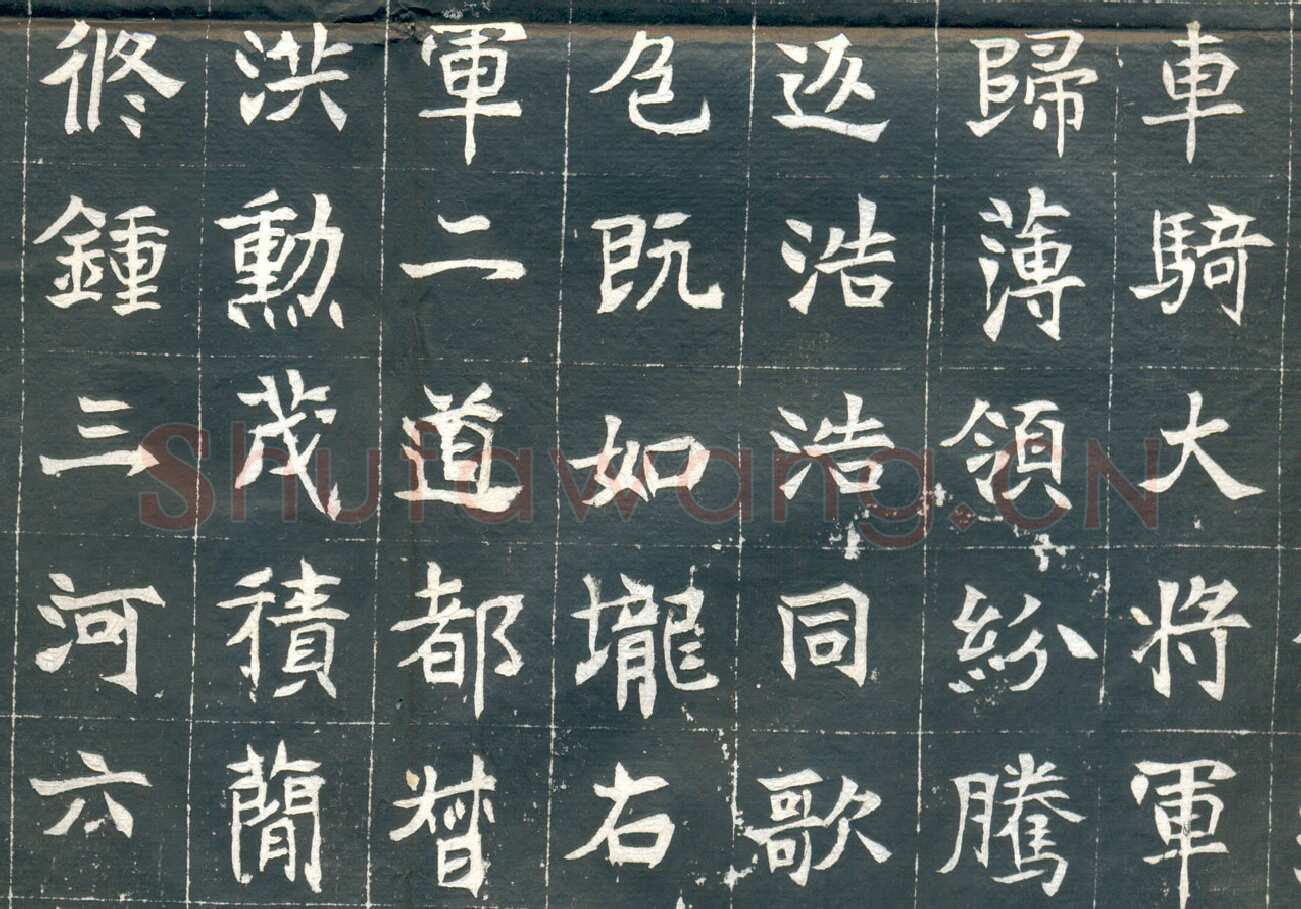 車騎大将軍
歸薄領紛騰
返浩浩同歌
邑既如壠右
軍二道都督
洪勳茂積蕳
修鍾三河六
Shufawang.CN